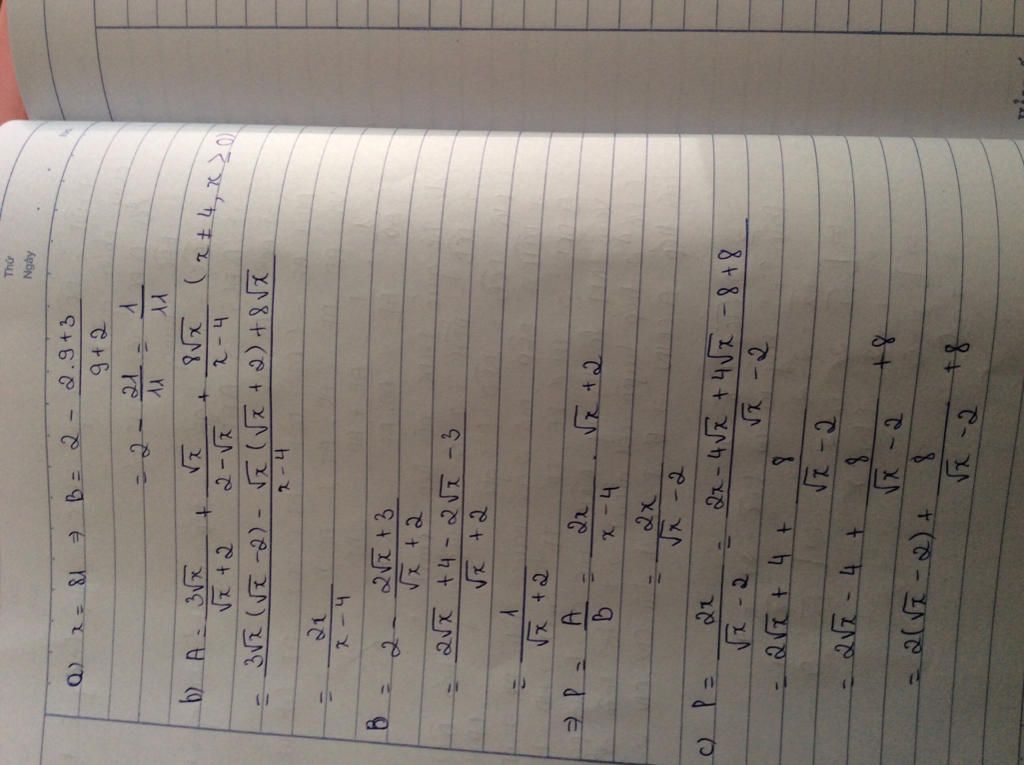 Thứ
Ngày
No.
a) x = 81 ⇒ B = 2 - (2.9+3)/(9+2)
= 2 - 21/11 = 1/11
b) A = 3√x/(√x+2) + √x/(2-√x) + 8√x/(x-4) (x ≠ 4, x ≥ 0)
= (3√x(√x-2) - √x(√x+2) + 8√x)/(x-4)
= 2x/(x-4)
B = 2 - (2√x+3)/(√x+2)
= (2√x + 4 - 2√x - 3)/(√x+2)
= 1/(√x+2)
⇒ P = A/B = 2x/(x-4) . √x+2
= 2x/(√x-2)
c) P = 2x/(√x-2) = (2x - 4√x + 4√x - 8 + 8)/(√x-2)
= 2√x + 4 + 8/(√x-2)
= 2√x - 4 + 8/(√x-2) + 8
= 2(√x-2) + 8/(√x-2) + 8